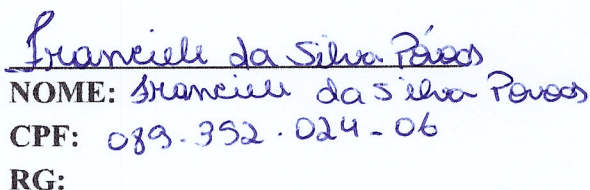 Franciele da Silva Póvoas
NOME: Franciele da Silva Povoas
CPF: 089.352.024-06
RG: